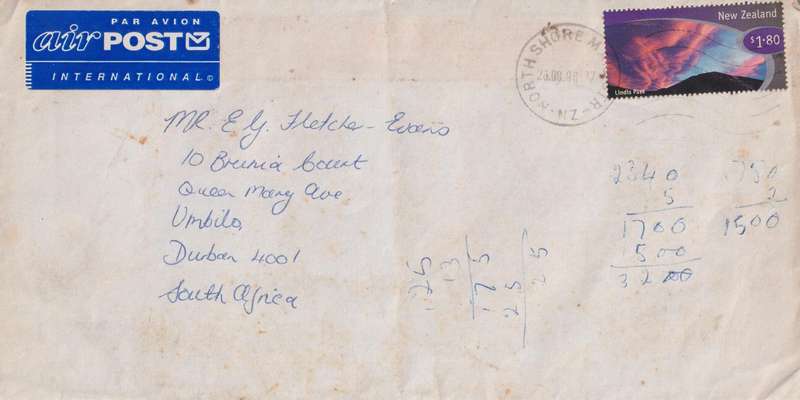 PAR AVION
air POST
INTERNATIONAL ©
New Zealand
$1.80
Lindis Pass
NORTH SHORE
NZ
MR. E G. Fletcher-Evans
10 Brunia Court
Queen Mary Ave
Umbilo,
Durban 4001
South Africa
2340
5
1700
1500
3200
750
2
1500
125
13
175
25
25